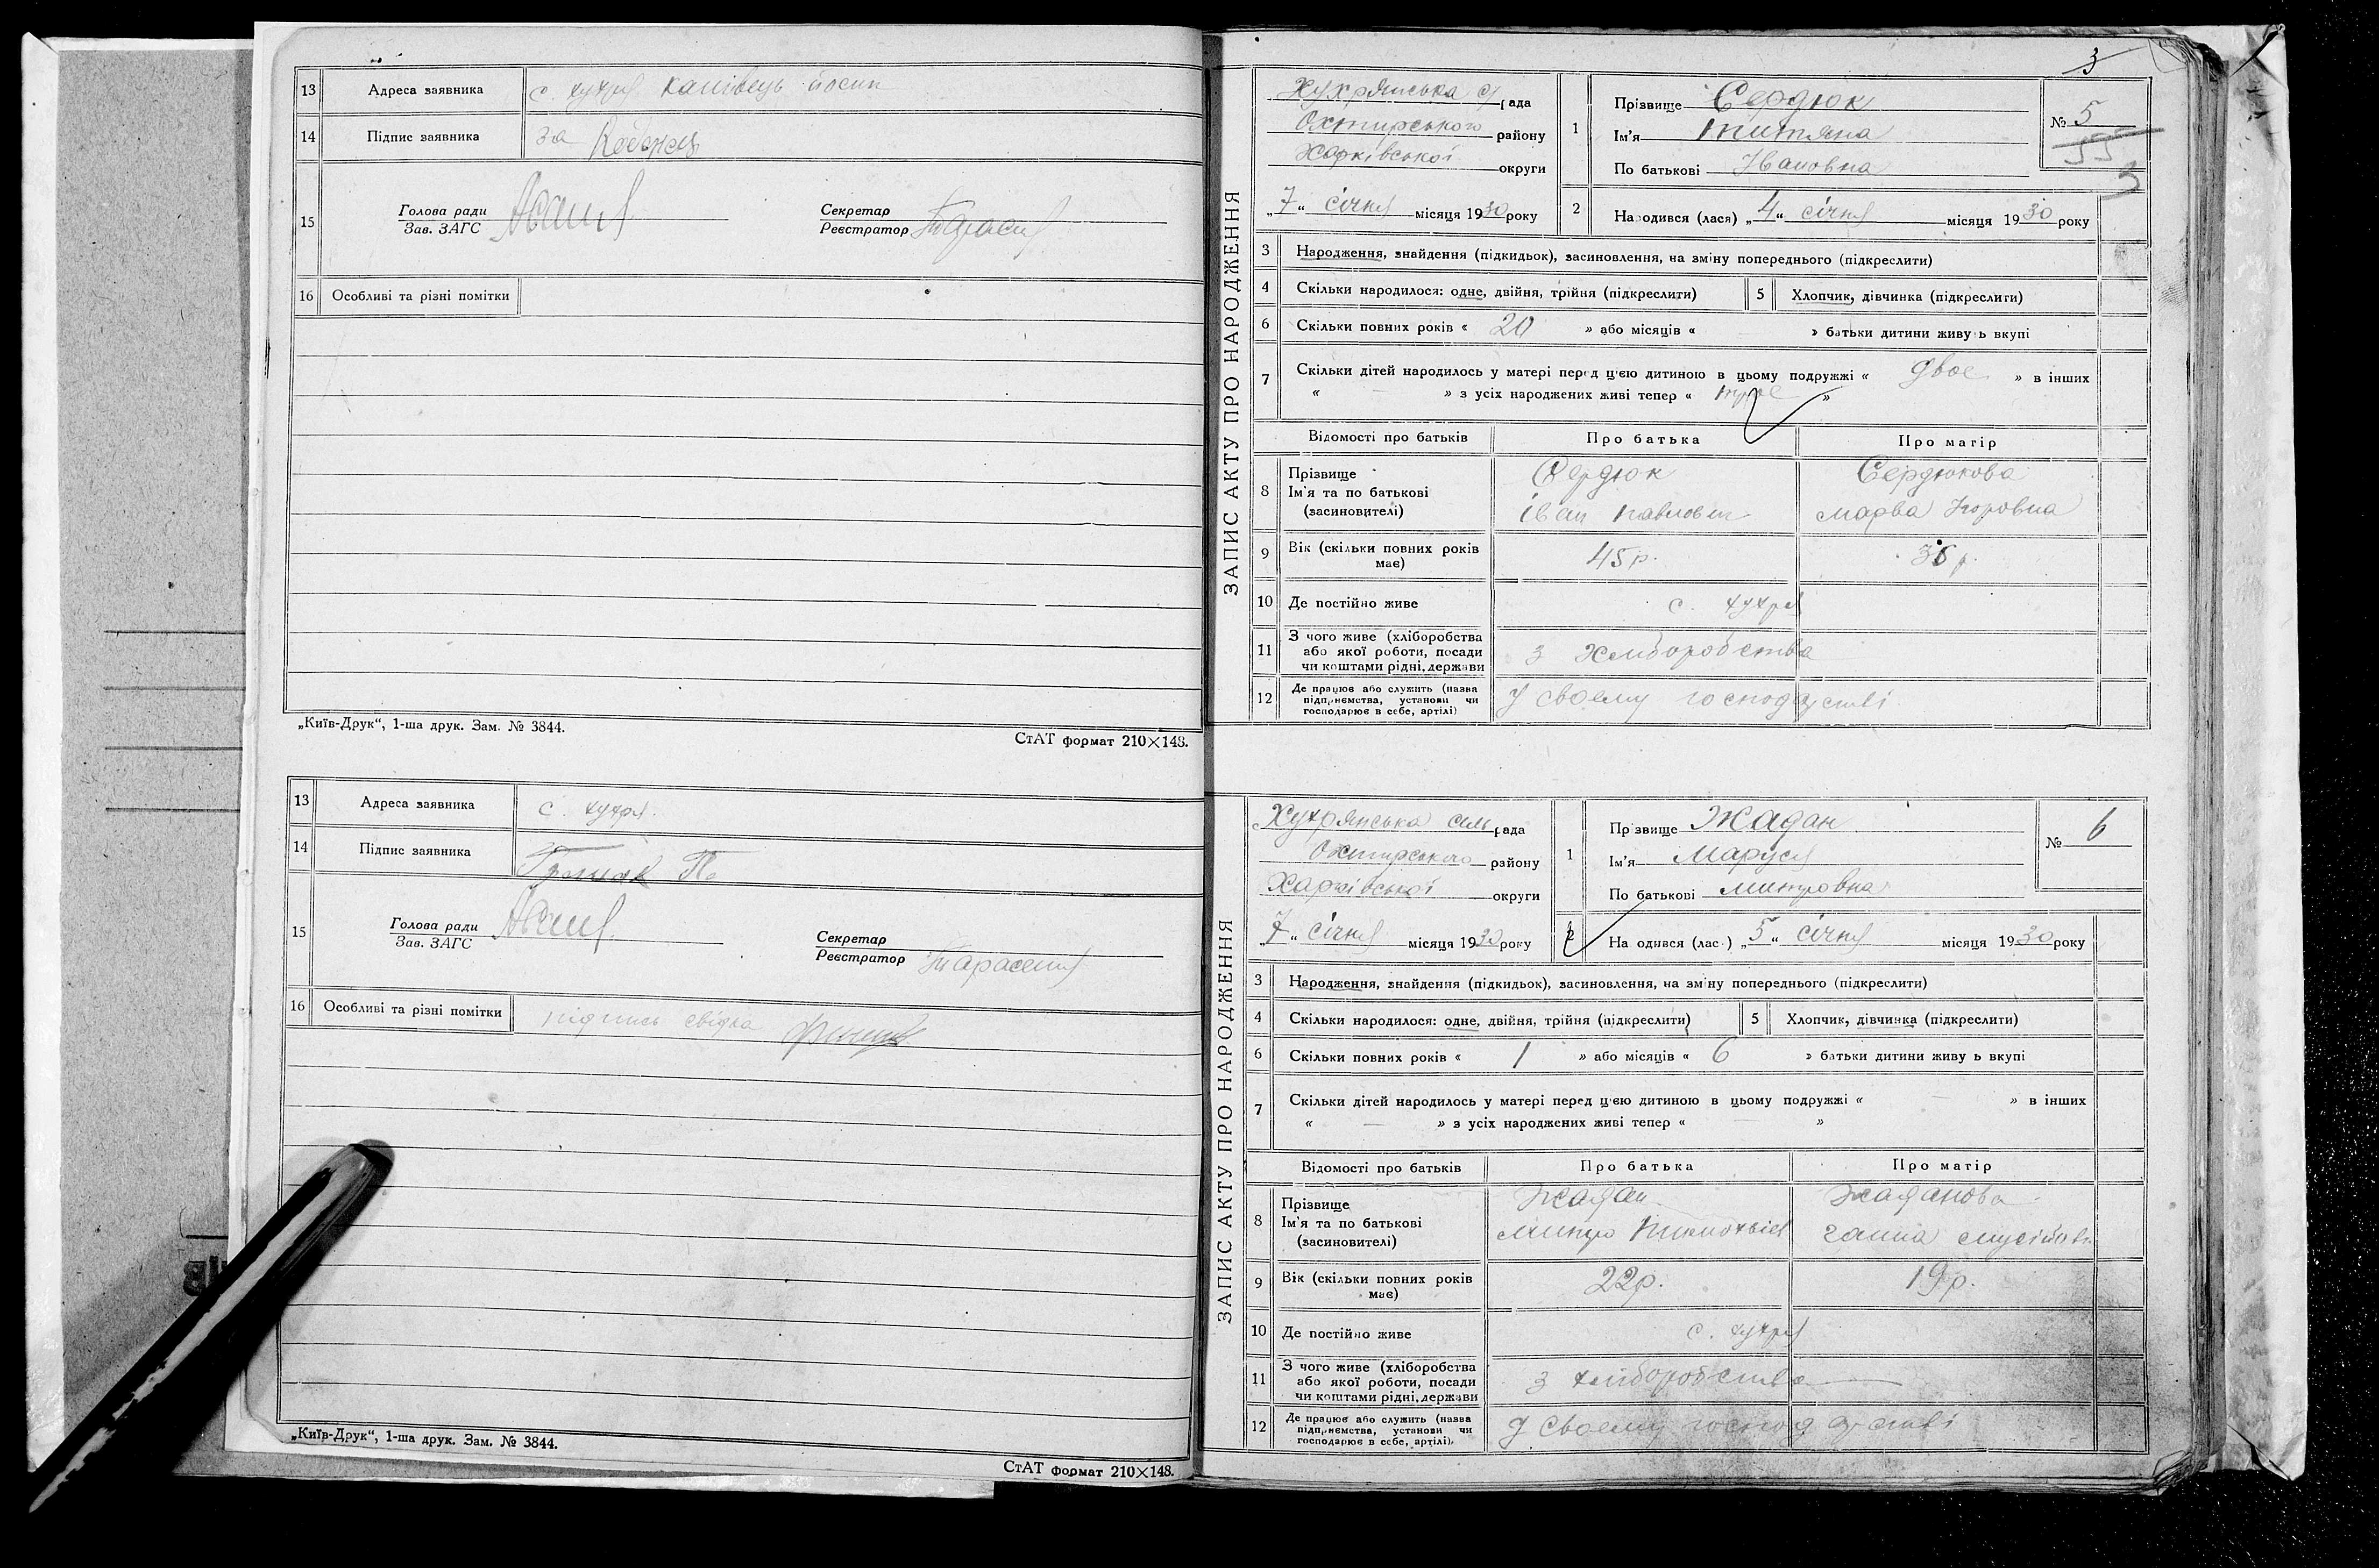 13 Адреса заявника с. хухря Канівець йосип
14 Підпис заявника за
15 Голова ради
Зав. ЗАГС
Секретар
Реєстратор
16 Особливі та різні помітки
„Київ-Друк“, 1-ша друк. Зам. № 3844.
СтАТ формат 210×148.
13 Адреса заявника с. хухря.
14 Підпис заявника
15 Голова ради
Зав. ЗАГС
Секретар
Реєстратор Тарасенко
16 Особливі та різні помітки підпись свідка
„Київ-Друк“, 1-ша друк. Зам. № 3844.
СтАТ формат 210×148.
3
ЗАПИС АКТУ ПРО НАРОДЖЕННЯ
Хухрянська с/рада
Охтирського району
Харківської округи
„7“ січня місяця 1930 року
1 Прізвище Сердюк
Ім'я
По батькові Івановна
№ 5
55
3
2 Народився (лася) „4“ січня місяця 1930 року
3 Народження, знайдення (підкидьок), засиновлення, на зміну попереднього (підкреслити)
4 Скільки народилося: одне, двійня, трійня (підкреслити) 5 Хлопчик, дівчинка (підкреслити)
6 Скільки повних років « 20 » або місяців « — » батьки дитини живуть вкупі
7 Скільки дітей народилось у матері перед цією дитиною в цьому подружжі « двое » в інших
« — » з усіх народжених живі тепер « трое »
Відомості про батьків Про батька Про матір
8 Прізвище Сердюк Сердюкова
Ім'я та по батькові
(засновителі) іван павлович марва
9 Вік (скільки повних років має) 45 р. 36 р.
10 Де постійно живе с. хухря
11 З чого живе (хліборобства
або якої роботи, посади
чи коштами рідні, держави з хліборобства
12 Де працює або служить (назва
підприємства, установи чи
господарює в себе, артілі) у своему господарстві
ЗАПИС АКТУ ПРО НАРОДЖЕННЯ
Хухрянська сільрада
Охтирського району
Харківської округи
„7“ січня місяця 1930 року
1 Прізвище Жадан
Ім'я Маруся
По батькові митровна
№ 6
2 Народився (лася) „5“ січня місяця 1930 року
3 Народження, знайдення (підкидьок), засиновлення, на зміну попереднього (підкреслити)
4 Скільки народилося: одне, двійня, трійня (підкреслити) 5 Хлопчик, дівчинка (підкреслити)
6 Скільки повних років « 1 » або місяців « 6 » батьки дитини живуть вкупі
7 Скільки дітей народилось у матері перед цією дитиною в цьому подружжі « — » в інших
« — » з усіх народжених живі тепер « — »
Відомості про батьків Про батька Про матір
8 Прізвище Жадан жаданова
Ім'я та по батькові
(засиновителі) митро ганна
9 Вік (скільки повних років має) 22 р. 19 р.
10 Де постійно живе с. хухря
11 З чого живе (хліборобства
або якої роботи, посади
чи коштами рідні, держави з хліборобства
12 Де працює або служить (назва
підприємства, установи чи
господарює в себе, артілі) у своему господарстві